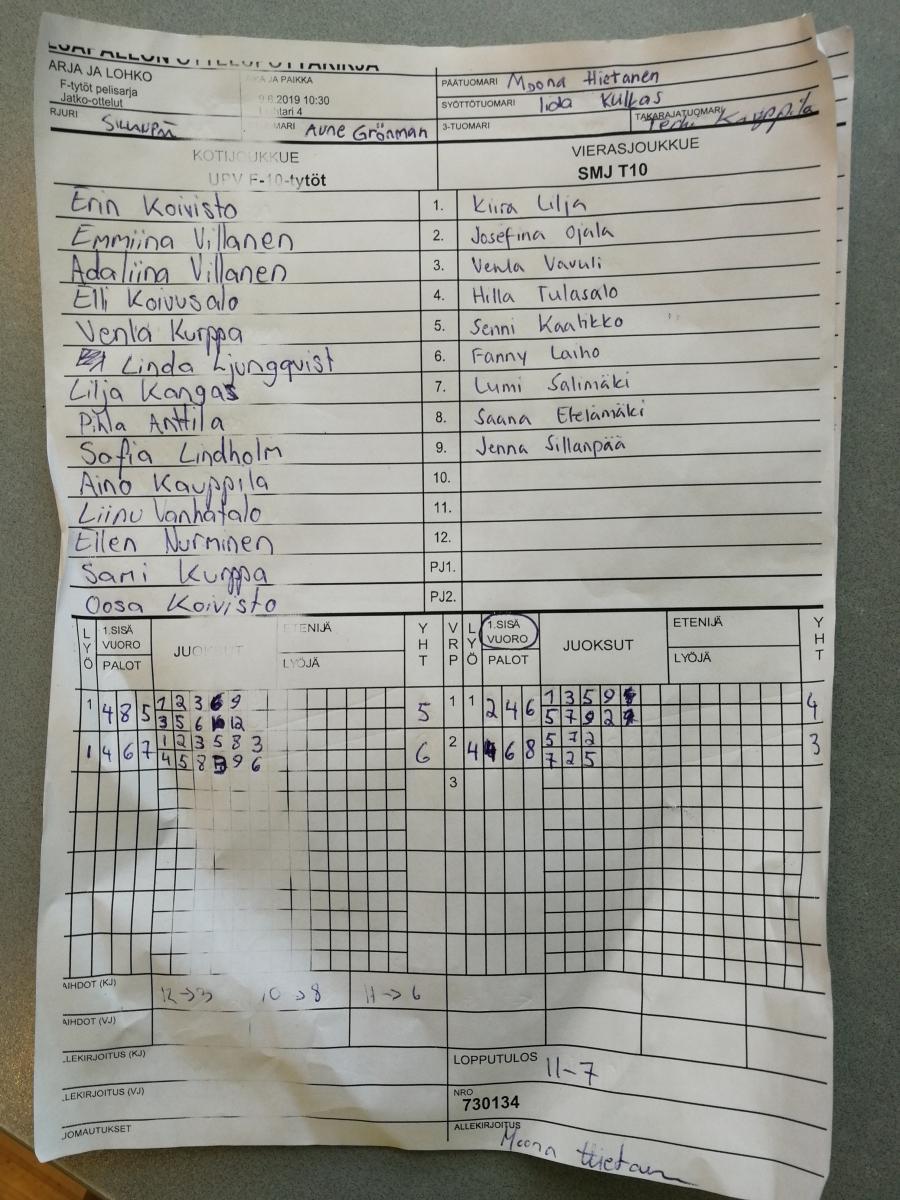 ARJA JA LOHKO
F-tytöt pelisarja
Jatko-ottelut
RJURI
JA PAIKKA
.6.2019 10:30
tari 4
MARI Aune Grönman
PÄÄTUOMARI Moona Hietanen
SYÖTTÖTUOMARI Iida Kulkas
3-TUOMARI
TAKARAJATUOMARI Kauppila
KOTIJOUKKUE
UPV F-10-tytöt
VIERASJOUKKUE
SMJ T10
Erin Koivisto 1. Kiira Lilja
Emmiina Villanen 2. Josefina Ojala
Adaliina Villanen 3. Venla Vavuli
Elli Koivusalo 4. Hilla Tulasalo
Venla Kurppa 5. Senni Kaatikko
Linda Ljungqvist 6. Fanny Laiho
Lilja Kangas 7. Lumi Salimäki
Pihla Anttila 8. Saana Etelämäki
Sofia Lindholm 9. Jenna Sillanpää
Aino Kauppila 10.
Liinu Vanhatalo 11.
Eilen Nurminen 12.
Sami Kurppa PJ1.
Oosa Koivisto PJ2.
LYÖ 1.SISÄ VUORO PALOT JUOKSUT ETENIJÄ LYÖJÄ YHT VRP LYÖ 1.SISÄ VUORO PALOT JUOKSUT ETENIJÄ LYÖJÄ YHT
1 4 8 5 1 2 3 6 9 5 1 1 2 4 6 1 3 5 9 4
3 5 6 12 5 7 9 2
1 4 6 7 1 2 3 5 8 3 6 2 4 4 6 8 5 7 2 3
4 5 8 9 6 7 2 5
3
AIHDOT (KJ) 12→3 10→8 11→6
AIHDOT (VJ)
LEKIRJOITUS (KJ)
LOPPUTULOS 11-7
LEKIRJOITUS (VJ)
NRO
730134
JOMAUTUKSET
ALLEKIRJOITUS
Moona Hietanen